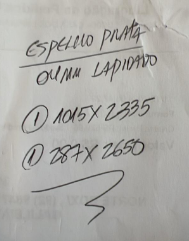 ESPELHO PRATA
04MM LAPIDADO
① 1015 X 2335
① 287 X 2650